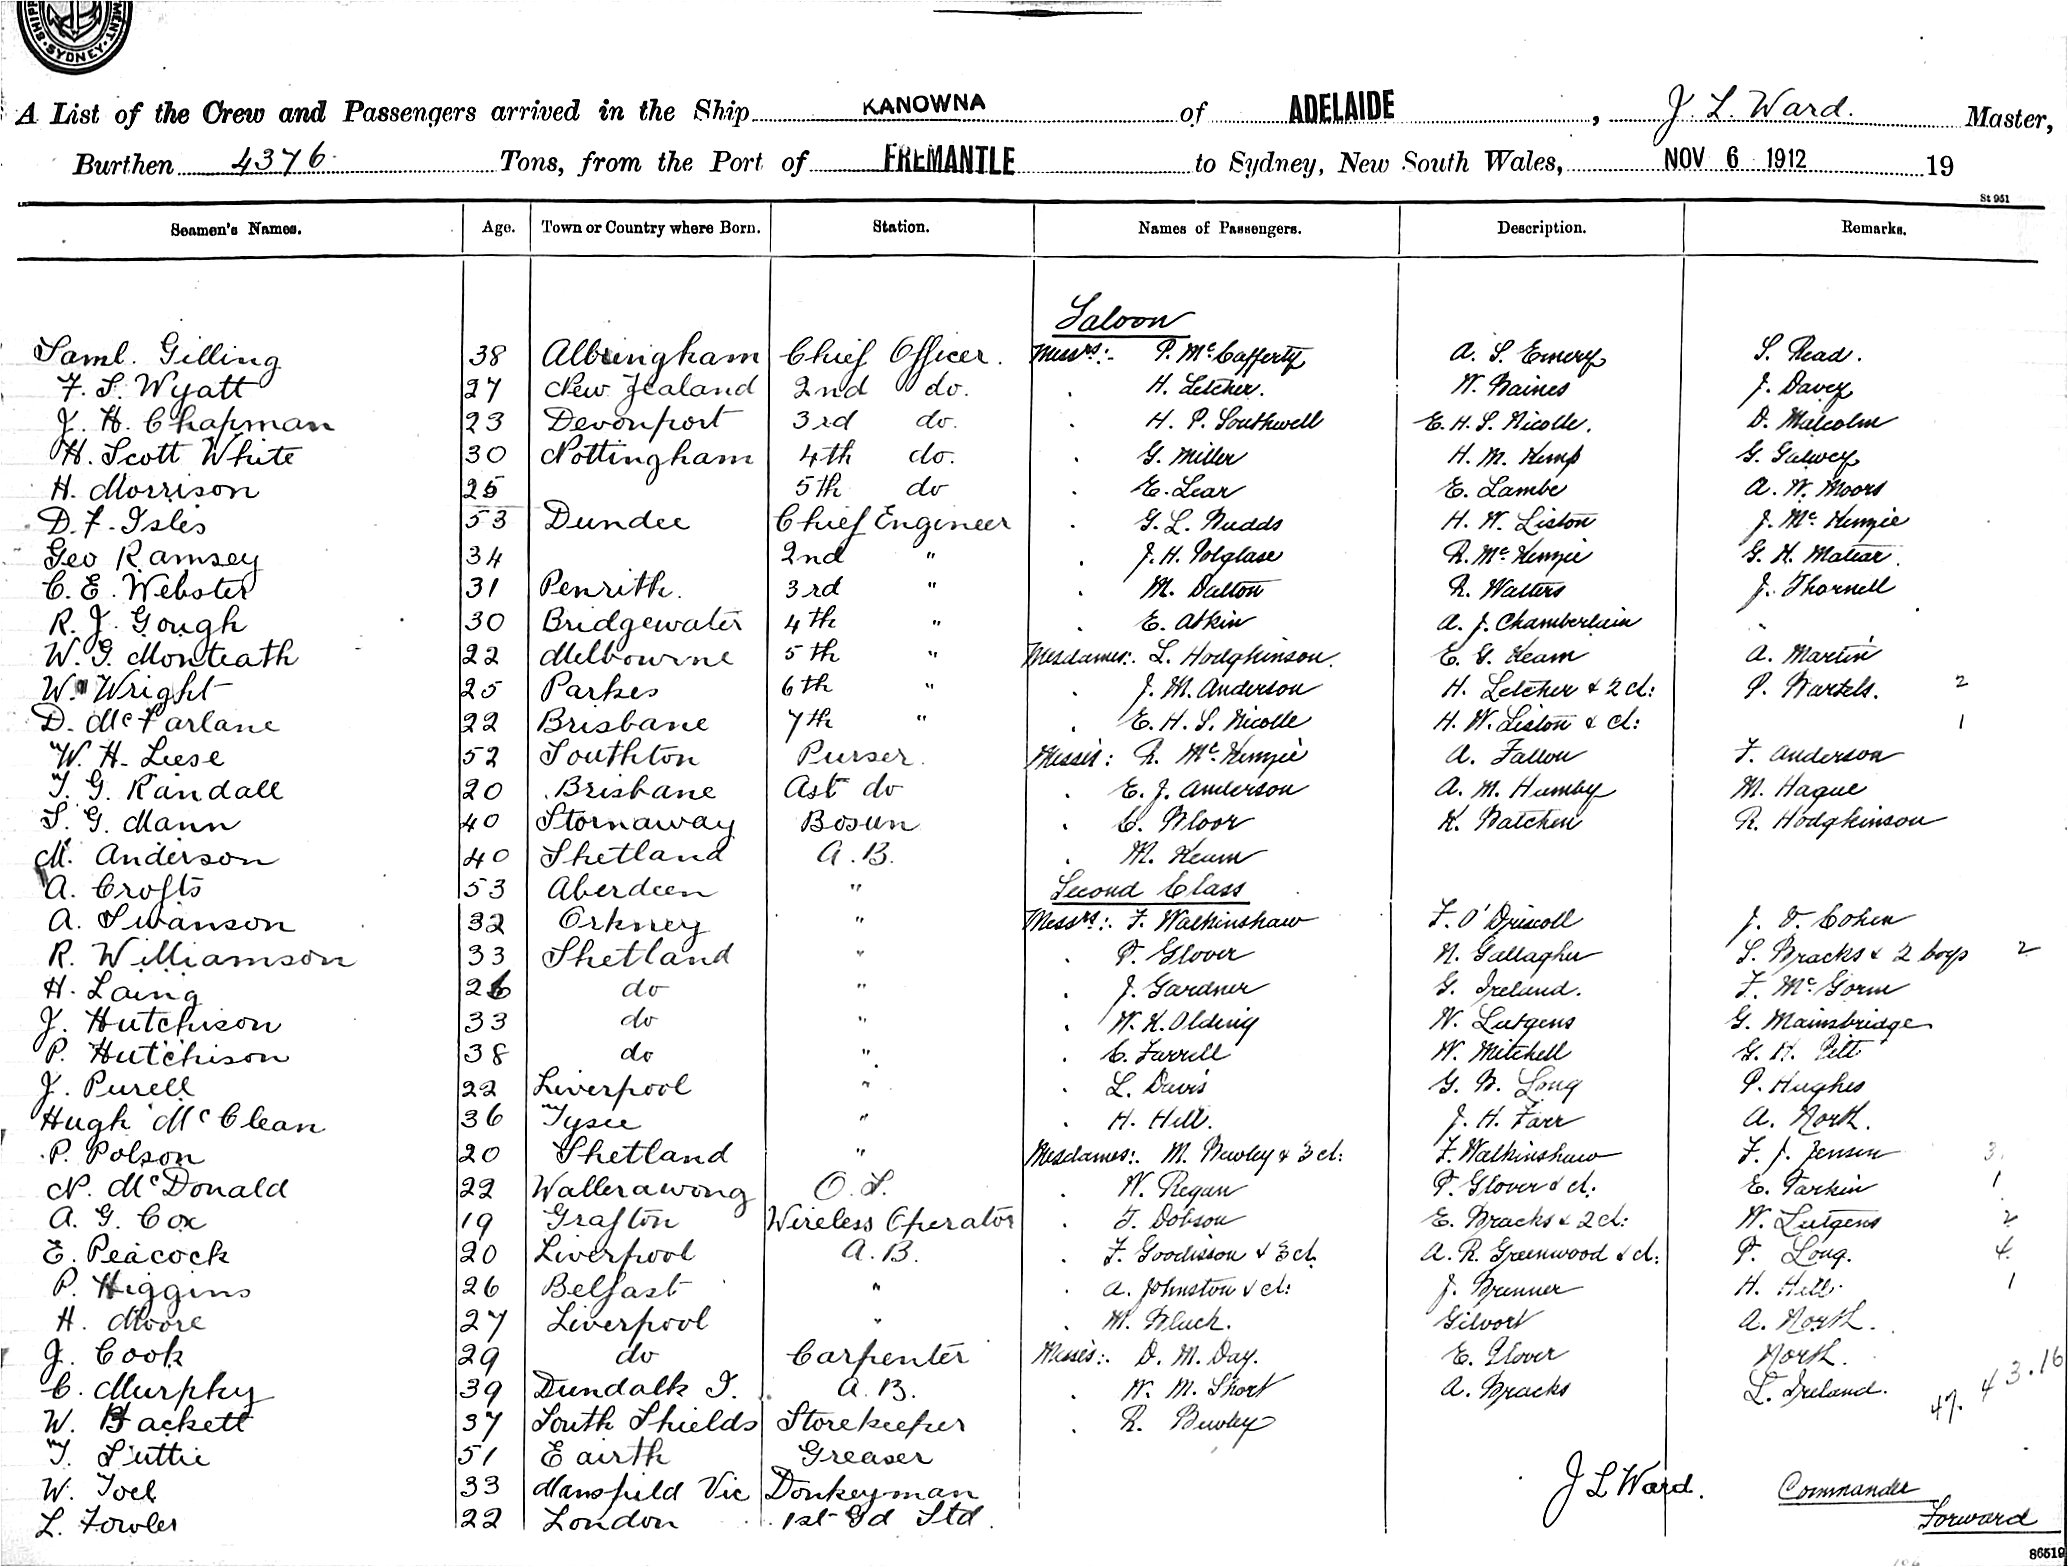 SYDNEY
A List of the Crew and Passengers arrived in the Ship KANOWNA of ADELAIDE, J. L. Ward. Master,
Burthen 4376 Tons, from the Port of FREMANTLE to Sydney, New South Wales, NOV 6 1912 19
St 951
Seamen's Names. Age. Town or Country where Born. Station. Names of Passengers. Description. Remarks.
Saloon
Saml. Gilling 38 Chief Officer. Messrs:- P. McCafferty A. S. Emery S. Read.
F. S. Wyatt 27 New Zealand 2nd do. . H. Letcher. W. Baines J. Davey
J. H. Chapman 23 Devonport 3rd do. . H. P. Southwell E. H. S. Nicolle. D. Malcolm
H. Scott White 30 Nottingham 4th do. . G. Miller H. M. Kemp G. Galwey
H. Morrison 25 5th do . E. Lear E. Lambe A. W. Moors
D. F. Isles 53 Dundee Chief Engineer . G. L. Budds H. W. Liston J. McKenzie
Geo Ramsey 34 2nd " . J. H. Polglase R. McKenzie G. H.
C. E. Webster 31 Penrith. 3rd " . M. Dalton R. Walters J. Thornell
R. J. Gough 30 Bridgewater 4th " . E. Atkin A. J. Chamberlain
W. G. Monteath 22 Melbourne 5th " Mesdames:. L. Hodgkinson. E. G. Keam A. Martin
W. Wright 25 Parkes 6th " . J. M. Anderson H. Letcher & 2 cl: P. Bartels. 2
D. McFarlane 22 Brisbane 7th " . E. H. S. Nicolle H. W. Liston & cl: 1
W. H. Leese 52 Southton Purser. Misses: R. McKenzie A. Fallon F. Anderson
T. G. Randall 20 Brisbane Ast do . E. J. Anderson A. M. Humby M. Hague
S. G. Mann 40 Stornaway Bosun . C. Bloor K. Batchen R. Hodgkinson
M. Anderson 40 Shetland A.B. . M. Keam
A. Crofts 53 Aberdeen " Second Class
A. Swanson 32 Orkney " Messrs:. F. Walkinshaw F. O'Driscoll J. D. Cohen
R. Williamson 33 Shetland " . P. Glover N. Gallagher S. Bracks & 2 boys 2
H. Laing 26 do " . J. Gardner G. Ireland. F. McGorm
J. Hutchison 33 do " . W. K. Olding W. Lutgens G. Mainsbridge
P. Hutchison 38 do " . C. Farrell W. Mitchell G. H. Pitt
J. Purell 22 Liverpool " . L. Davis G. B. Long P. Hughes
Hugh McClean 36 " . H. Hill. J. H. Farr A. North.
P. Polson 20 Shetland " Mesdames:. M. Bewley & 3 cl: F. Walkinshaw F. J. Jensen 3
N. McDonald 22 Wallerawong O.S. . W. Regan P. Glover & cl: E. Larkin 1
A. G. Cox 19 Grafton Wireless Operator . F. Dobson E. Bracks & 2 cl: W. Lutgens 2
E. Peacock 20 Liverpool A.B. . F. Goodisson & 3 cl. A. R. Greenwood & cl: P. Long. 4
P. Higgins 26 Belfast " . A. Johnston & cl: J. Brenner H. Hill 1
H. Moore 27 Liverpool " . M. Gilvort A. North.
J. Cook 29 do Carpenter Misses:. D. M. Day. E. Glover North.
C. Murphy 39 Dundalk I. A.B. . W. M. Short A. Bracks L. Ireland. 47. 43.16
W. Hackett 37 South Shields Storekeeper . R. Bewley
T. Suttie 51 Eairth Greaser
W. Joel 33 Mansfield Vic Donkeyman J L Ward. Commander
L. Fowler 22 London 1st Gd Std. Forward
86519